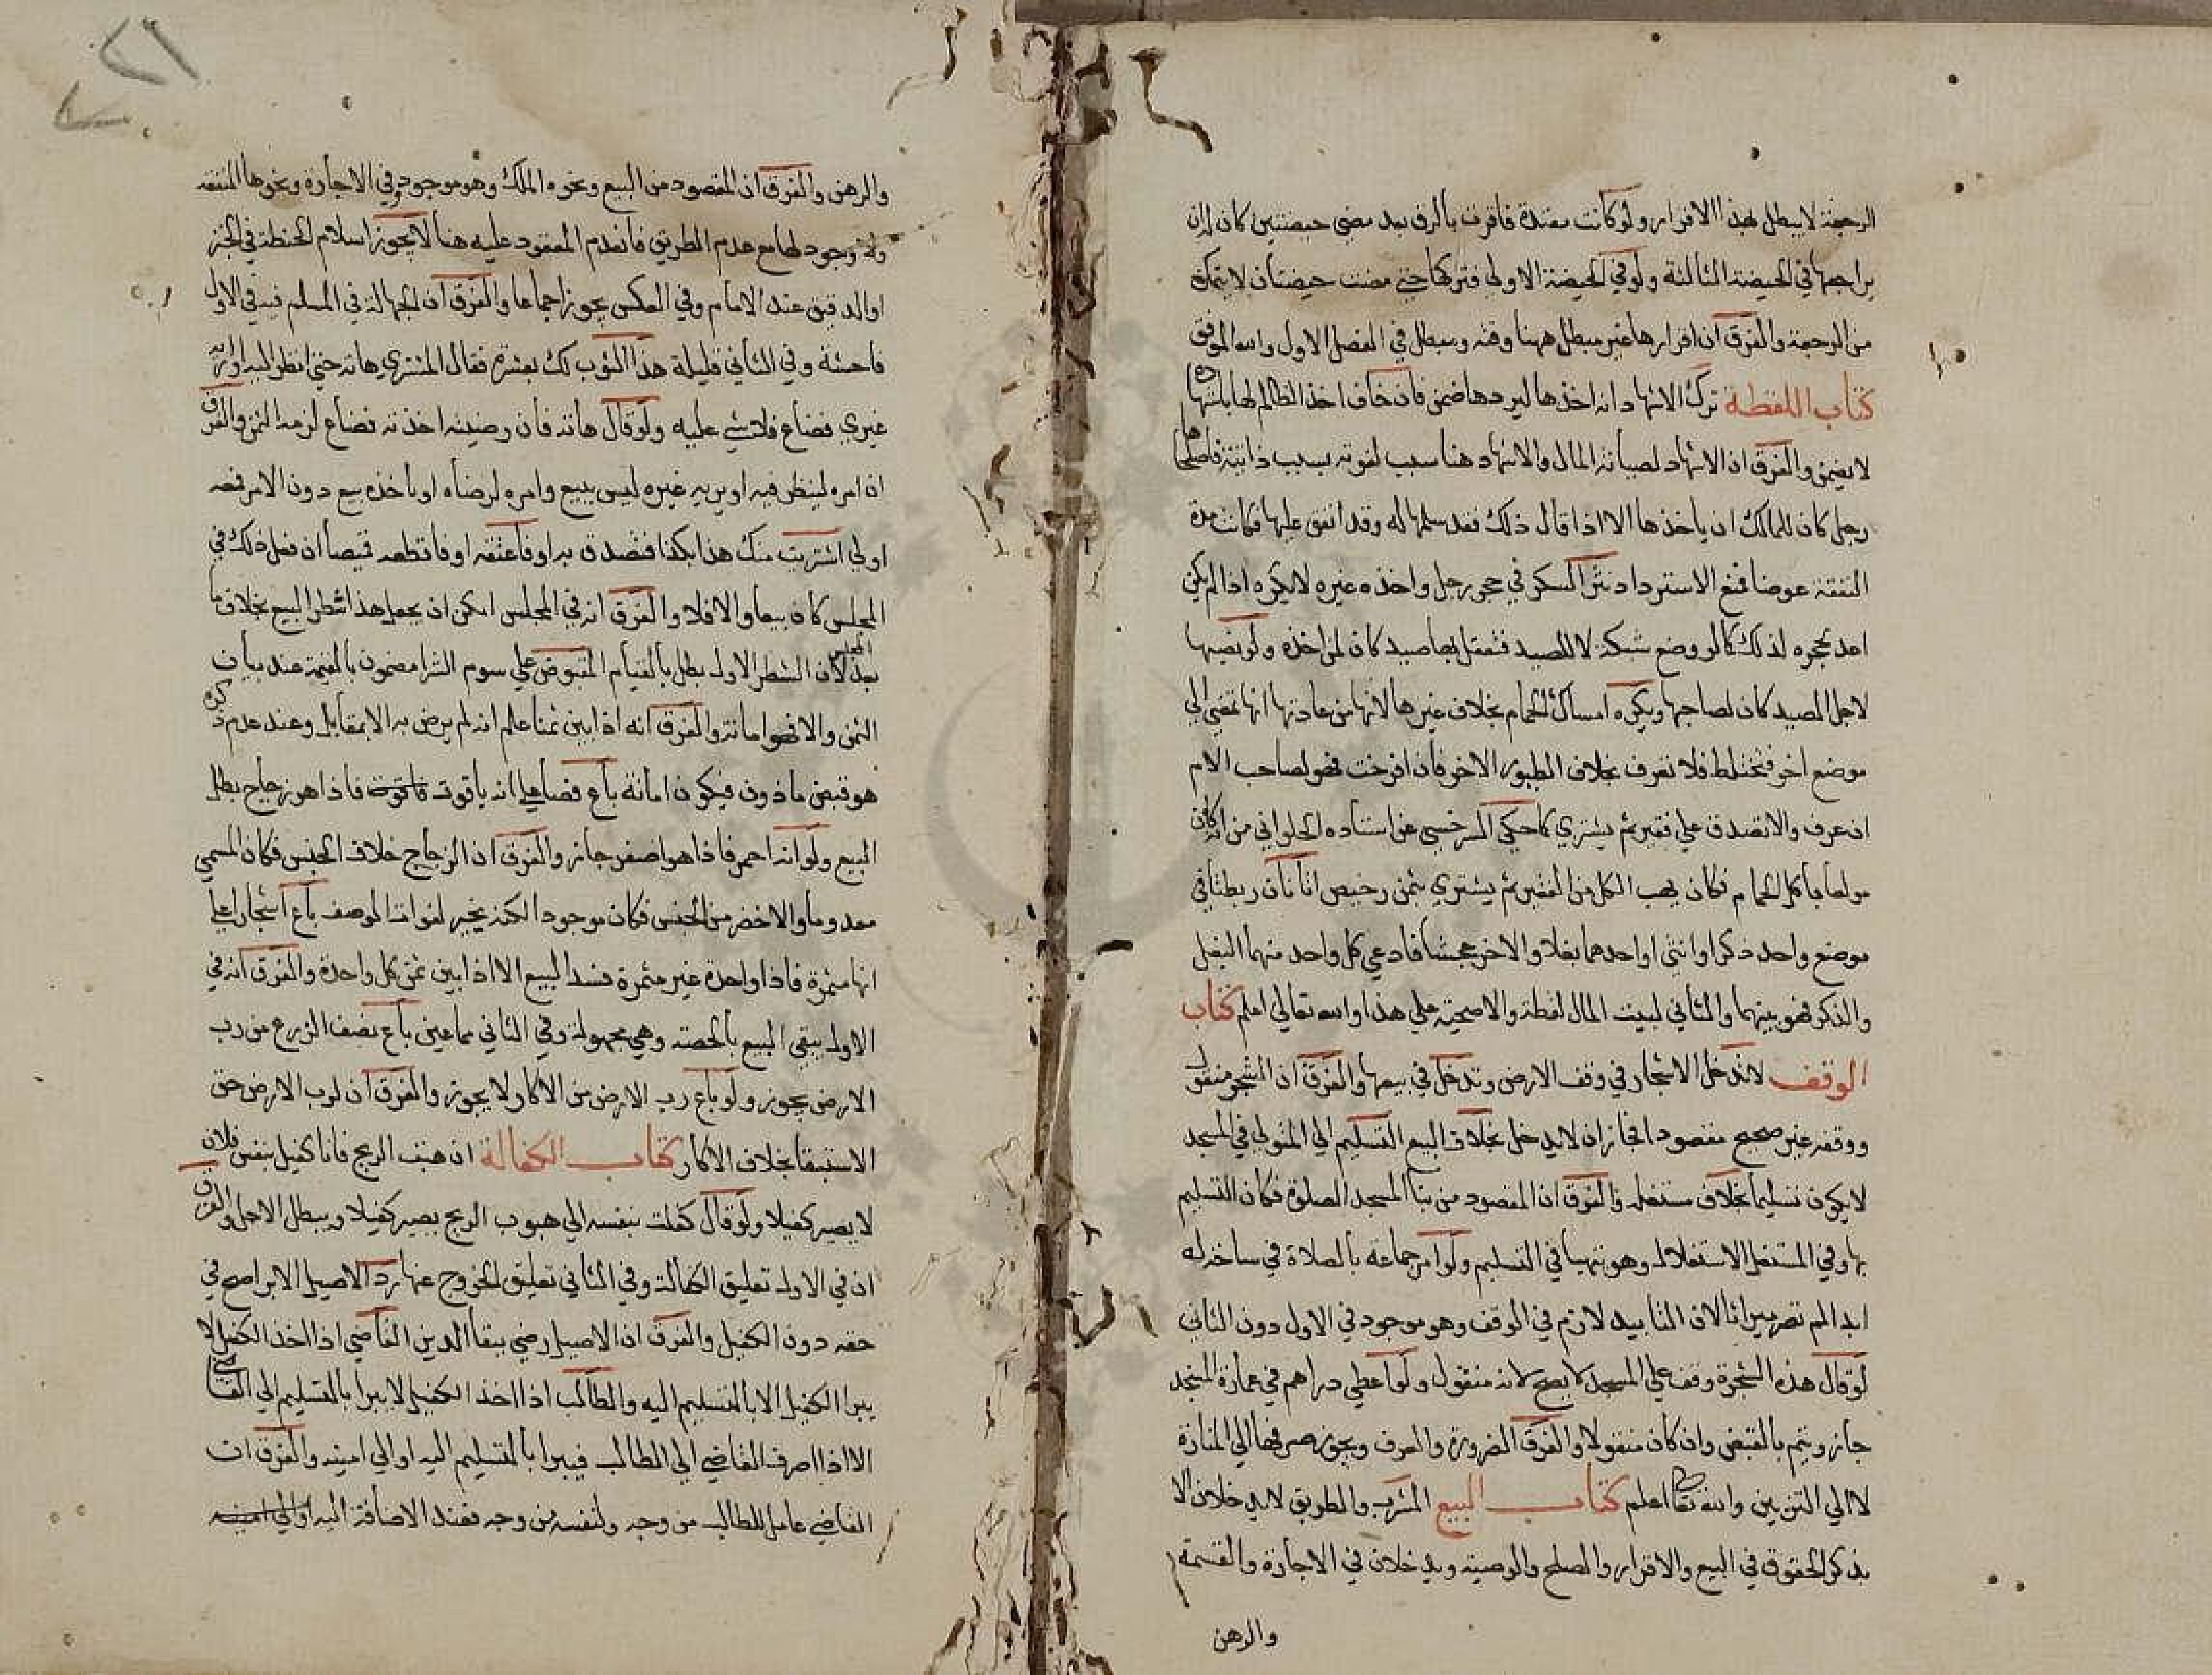 الرجعة لا يبطل لهذا الاقرار ولو كانت معتدة فاقرت بالرق بعد مضي حيضتين كان له ان
يراجعها في الحيضة الثالثة ولو في الحيضة الاولى فتركها حتى مضت حيضتان لا يتمكن
من الرجعة والفرق ان اقرارها غير مبطل ههنا وقته ومبطل في الفصل الاول والله الموفق
كتاب اللقطة ترك الاشهاد انه اخذها ليردها ضمن فان خاف اخذ الظالم لها باشهاده
لا يضمن والفرق ان الاشهاد لصيانة المال والاشهاد هنا سبب لفوته بسبب دابة فاصلحها
رجل كان للمالك ان ياخذها الا اذا قال ذلك فقد سلمها له وقد انفق عليها فكانت هذه
النفقة عوضا فمنع الاسترداد نثر السكر في حجر رجل واخذه غيره لا يكره اذا لم يكن
اعد حجره لذلك كما لو وضع شبكة لا للصيد فتعقل بها صيد كان لمن اخذه ولو نصبها
لاجل الصيد كان لصاحبها ويكره امساك الحمام بخلاف غيرها لانها من عادتها انها تمضي الي
موضع اخر فتختلط فلا تعرف بخلاف الطيور الاخر فان افرخت فهو لصاحب الام
ان عرف والا تصدق علي فقير ثم يشتري كما حكي السرخسي عن استاده الحلواني من انه كان
مولعا باكل الحمام فكان يهب الكل من الفقير ثم يشتري بثمن رخيص اتانان ربطتا في
موضع واحد ذكرا وانثى او احدهما بغلا والاخر جحشا فادعي كل واحد منهما البغل
والذكر فهو بينهما والثاني لبيت المال لقطة والاضحية علي هذا والله تعالي اعلم كتاب
الوقف لا تدخل الاشجار في وقف الارض وتدخل في بيعها والفرق ان الشجر منقول
ووقفه غير صحيح مقصودا فجاز ان لا يدخل بخلاف البيع التسليم الي المتولي في المسجد
لا يكون تسليما بخلاف مستغله والفرق ان المقصود من بنا المسجد الصلوة فكان التسليم
بها وفي المستغل الاستغلال وهو يتهيا في التسليم ولو امر جماعة بالصلاة في ساحة له
ابدا لم تصر ميراثا لان التابيد لازم في الوقف وهو موجود في الاول دون الثاني
لو قال هذه الشجرة وقف علي المسجد لا يصح لانه منقول ولو اعطي دراهم في عمارة المسجد
جاز ويتم بالقبض وان كان منقولا والفرق الضرورة والعرف ويجوز صرفها الي المنارة
لا الي التزيين والله تعالى اعلم كتاب البيع الشرب والطريق لا يدخلان الا
بذكر الحقوق في البيع والاقرار والصلح والوصية ويدخلان في الاجارة والقسمة
والرهن
والرهن والفرق ان المقصود من البيع ونحوه الملك وهو موجود وفي الاجارة ونحوها المنفعة
ولا وجود لها مع عدم الطريق فانعدم المعقود عليه هنا لا يجوز اسلام الحنطة في الخبز
او الدقيق عند الامام وفي العكس يجوز اجماعا والفرق ان الجهالة في المسلم فيه في الاول
فاحشة وفي الثاني قليلة هذا الثوب لك بعشرة فقال المشتري هاته حتى انظر اليه او اريه
غيري فضاع فلا شي عليه ولو قال هاته فان رضيته اخذته فضاع لزمه الثمن والفرق
ان امره لينظر فيه او يريه غيره ليس ببيع وامره لرضاه او ياخذه بيع دون الامر فصه
اولي اشتريت منك هذا بكذا فتصدق به او فاعتقه او فاقطعه قميصا ان فعل ذلك في
المجلس كان بيعا والا فلا والفرق انه في المجلس امكن ان يجعل هذا شطر البيع بخلاف ما
بعد المجلس لان الشطر الاول بطل بالقيام المقبوض علي سوم الشرا مضمون بالقيمة عند بيان
الثمن والا فهو امانة والفرق انه اذا بين ثمنا علم انه لم يرض به الا بمقابل وعند عدم ذكره
هو قبض ماذون فيكون امانة باع فصا علي انه ياقوت فاذا هو زجاج بطل
البيع ولو انه احمر فاذا هو اصفر جاز والفرق ان الزجاج خلاف الجنس فكان المسمي
معدوما والاخضر من الجنس فكان موجودا لكنه يخير لفوات الوصف باع اشجارا علي
انها مثمرة فاذا واحدة غير مثمرة فسد البيع الا اذا بين ثمن كل واحدة والفرق انه في
الاول يبقي البيع بالحصة وهي مجهولة وفي الثاني مما عين باع نصف الزرع من رب
الارض يجوز ولو باع رب الارض من الاكار لا يجوز والفرق ان لرب الارض حق
الاستبقا بخلاف الاكار كتاب الكفالة ان هبت الريح فانا كفيل بنفس فلان
لا يصير كفيلا ولو قال كفلت بنفسه الي هبوب الريح يصير كفيلا ويبطل الاجل والفرق
ان في الاول تعليق الكفالة وفي الثاني تعليق الخروج عنها رد الاصيل الابرا صح في
حقه دون الكفيل والفرق ان الاصيل رضي ببقا الدين القاضي اذا اخذ الكفيل لا
يبرا الكفيل الا بالتسليم اليه والطالب اذا اخذ الكفيل لا يبرا بالتسليم الي القاضي
الا اذا صرف القاضي الي الطالب فيبرا بالتسليم اليه او الي امينه والفرق ان
القاضي عامل للطالب من وجه ولنفسه من وجه فعند الاضافة اليه